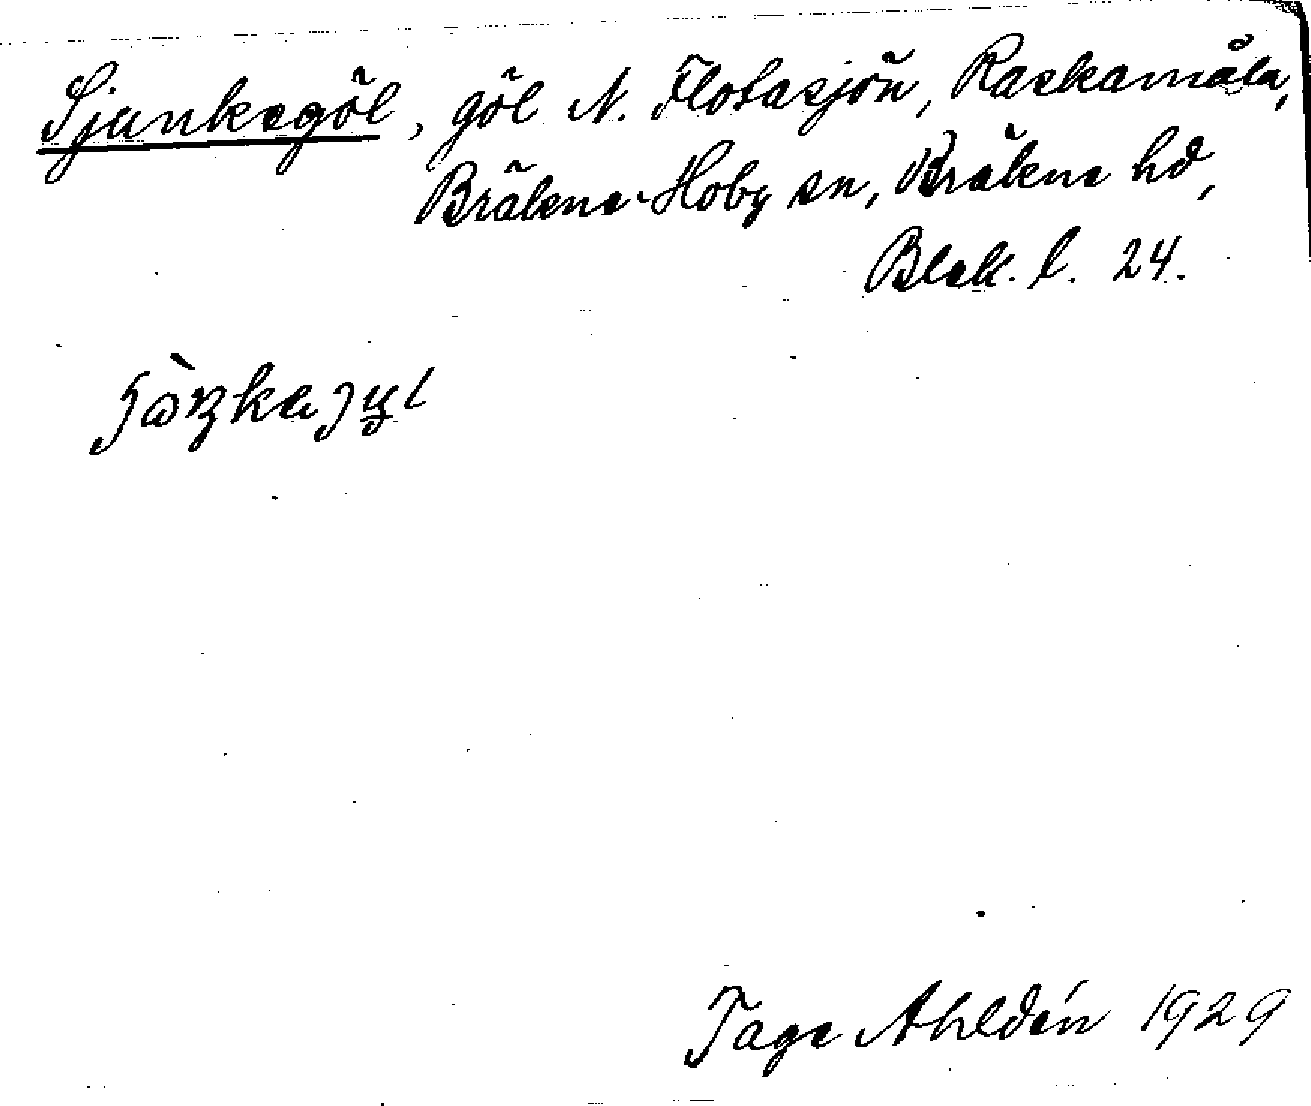 Sjunkegöl, göl N. Flotasjön, Raskamåla,
Bräkne-Hoby sn, Bräkne hd,
Blek. l. 24.
Tage Ahldén 1929